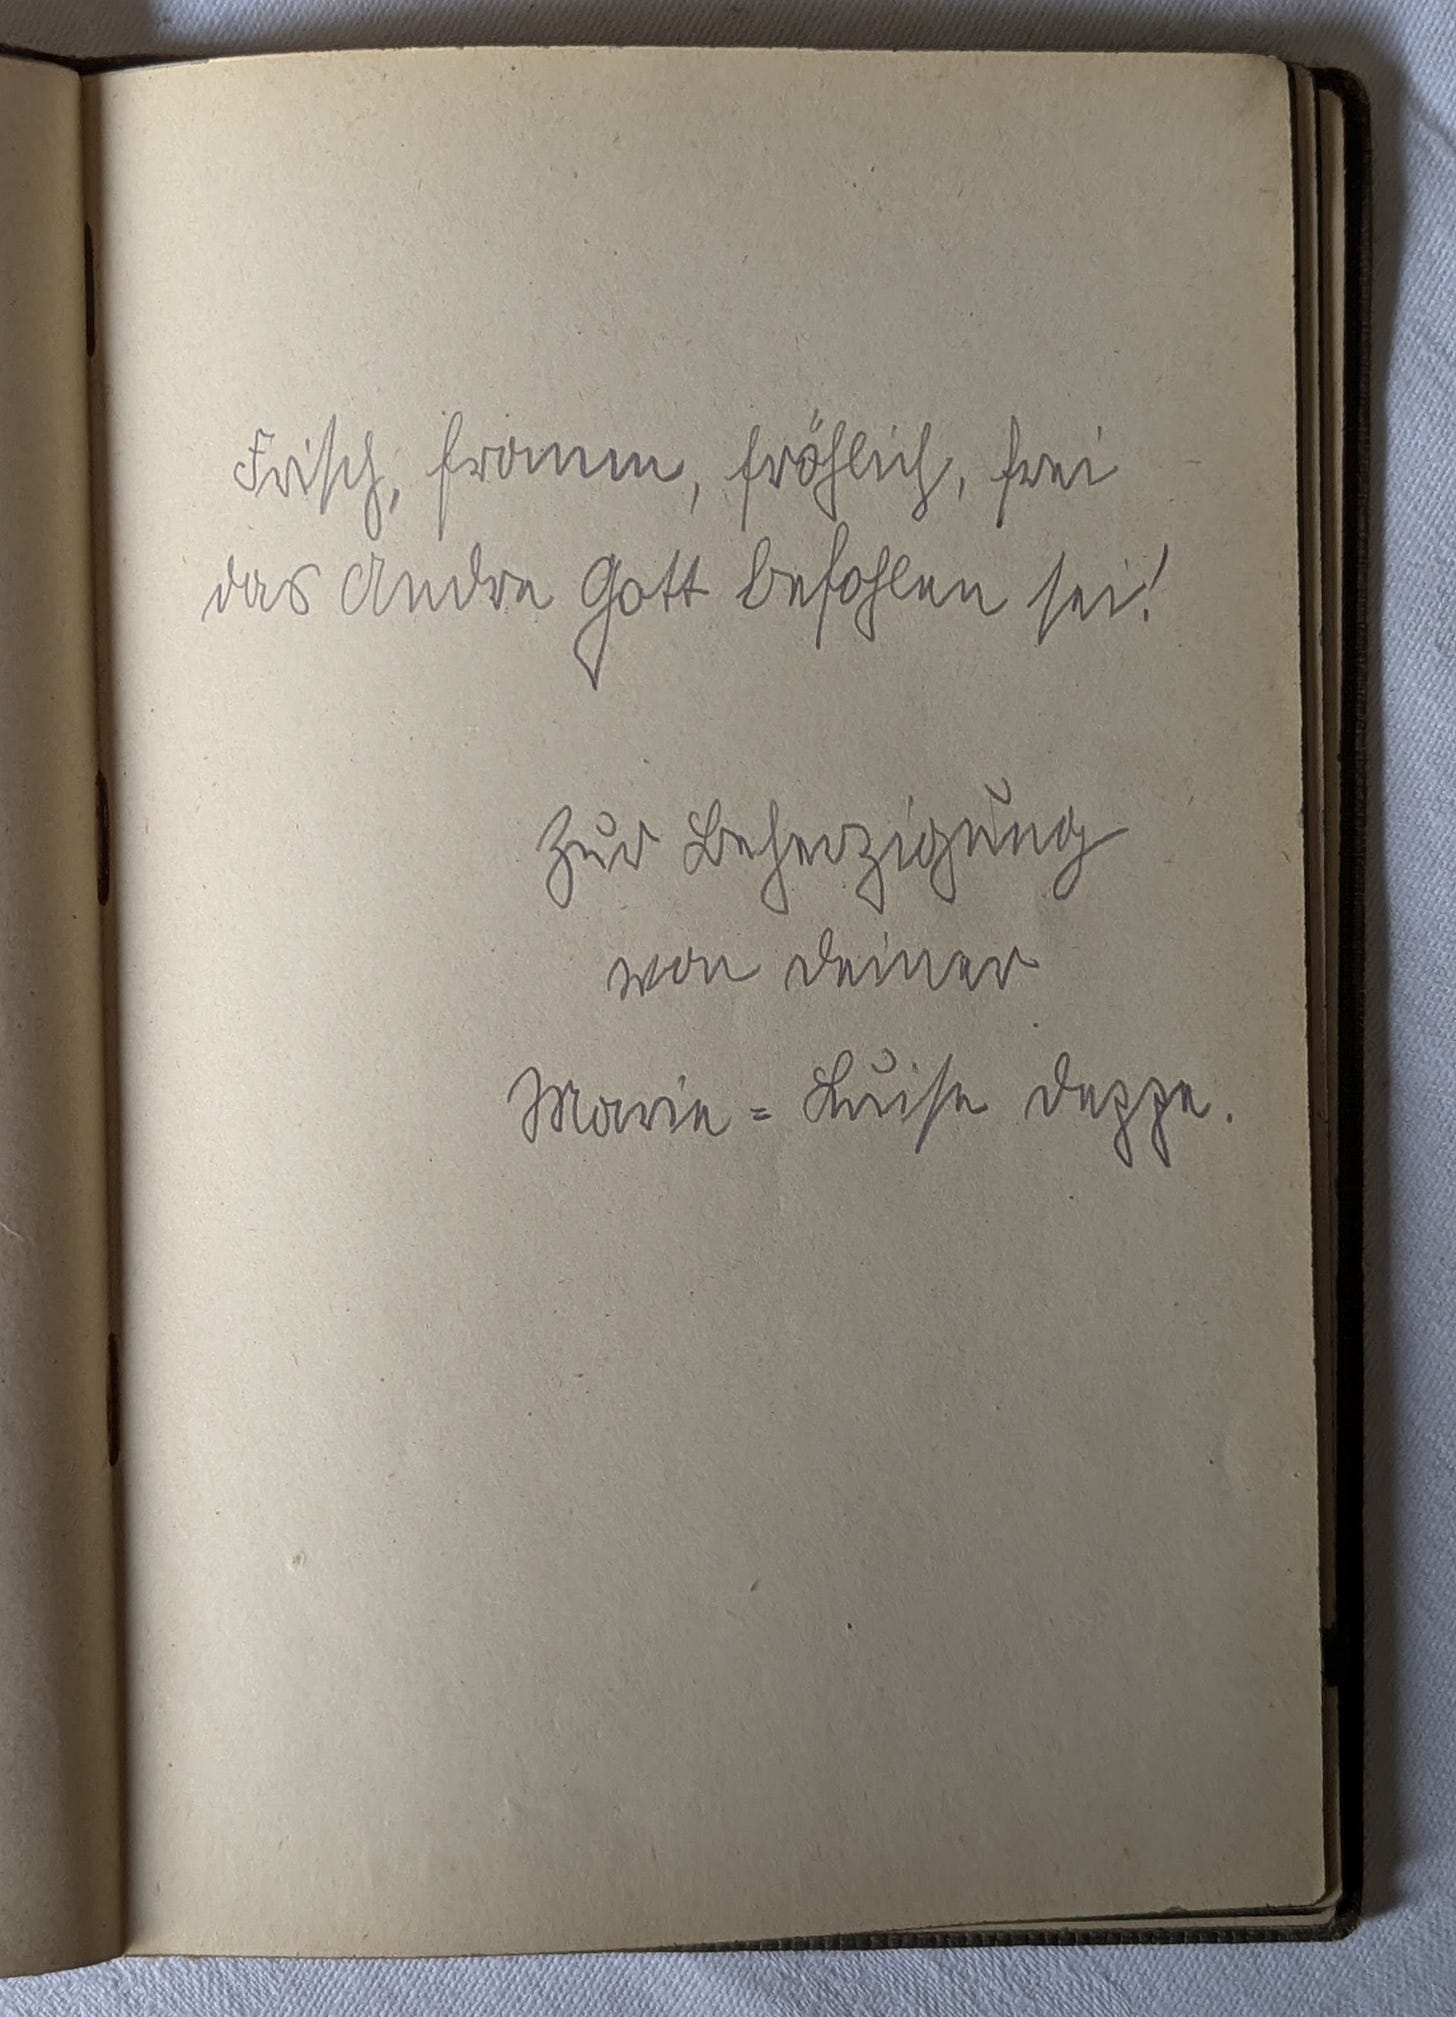 Frisch, fromm, fröhlich, frei
das Andre Gott befohlen sei!
Zur Beherzigung
von deiner
Marie = Luise Deppe.